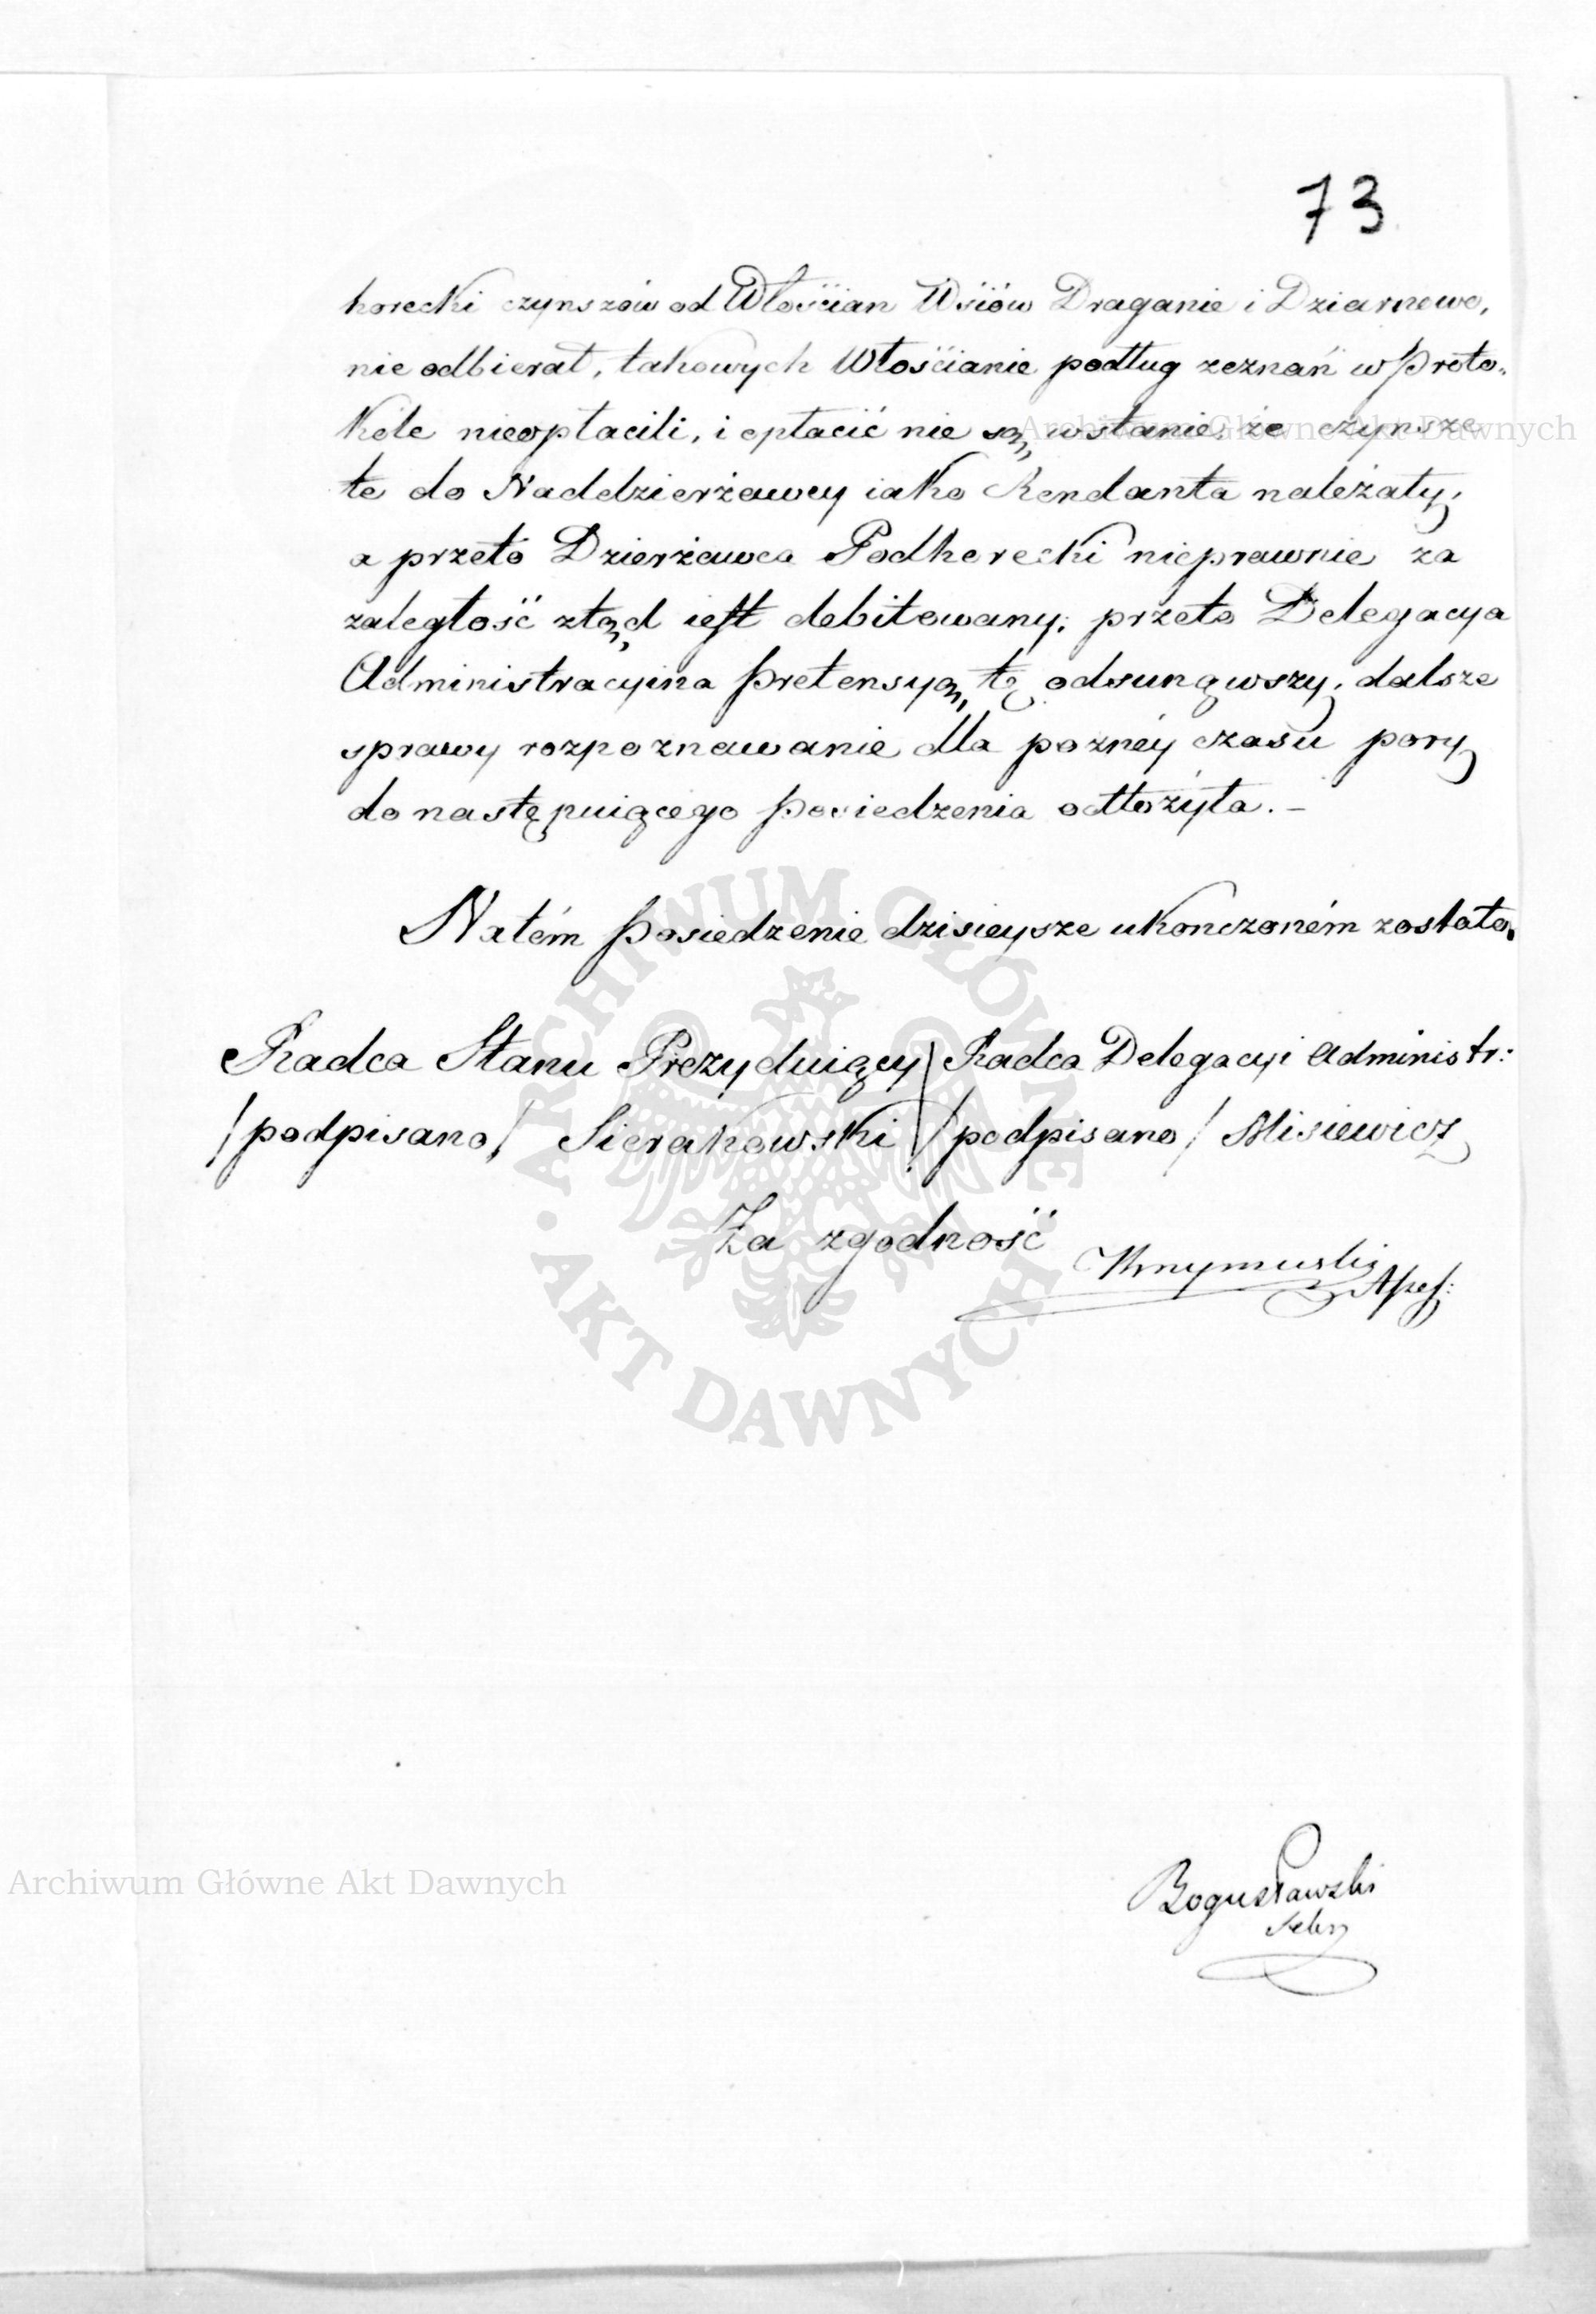 73
horecki czynszów od Włościan Wsiów Draganie i Dziarnowo,
nie odbierał, takowych Włościanie podług zeznań w Proto-
kóle nieopłacili, i opłacić nie są wstanie, że czynsze
te do Naddzierżawcy iako Rendanta należały,
a przeto Dzierżawca Podhorecki nieprawnie za
zaległość ztąd iest debitowany; przeto Delegacya
Administracyina Pretensyą tę odsunąwszy, dalsze
sprawy rozpoznawanie dla pozney czasu pory
do następuiącego Posiedzenia odłożyła. –
Natém Posiedzenie dzisieysze ukonczoném zostało.
Radca Stanu Prezyduiący Radca Delegacyi Administr:
/podpisano/ Sierakowski /podpisano/ Misiewicz
Za zgodność
Bogusławski
Archiwum Główne Akt Dawnych
Archiwum Główne Akt Dawnych
ARCHIWUM GŁÓWNE
AKT DAWNYCH